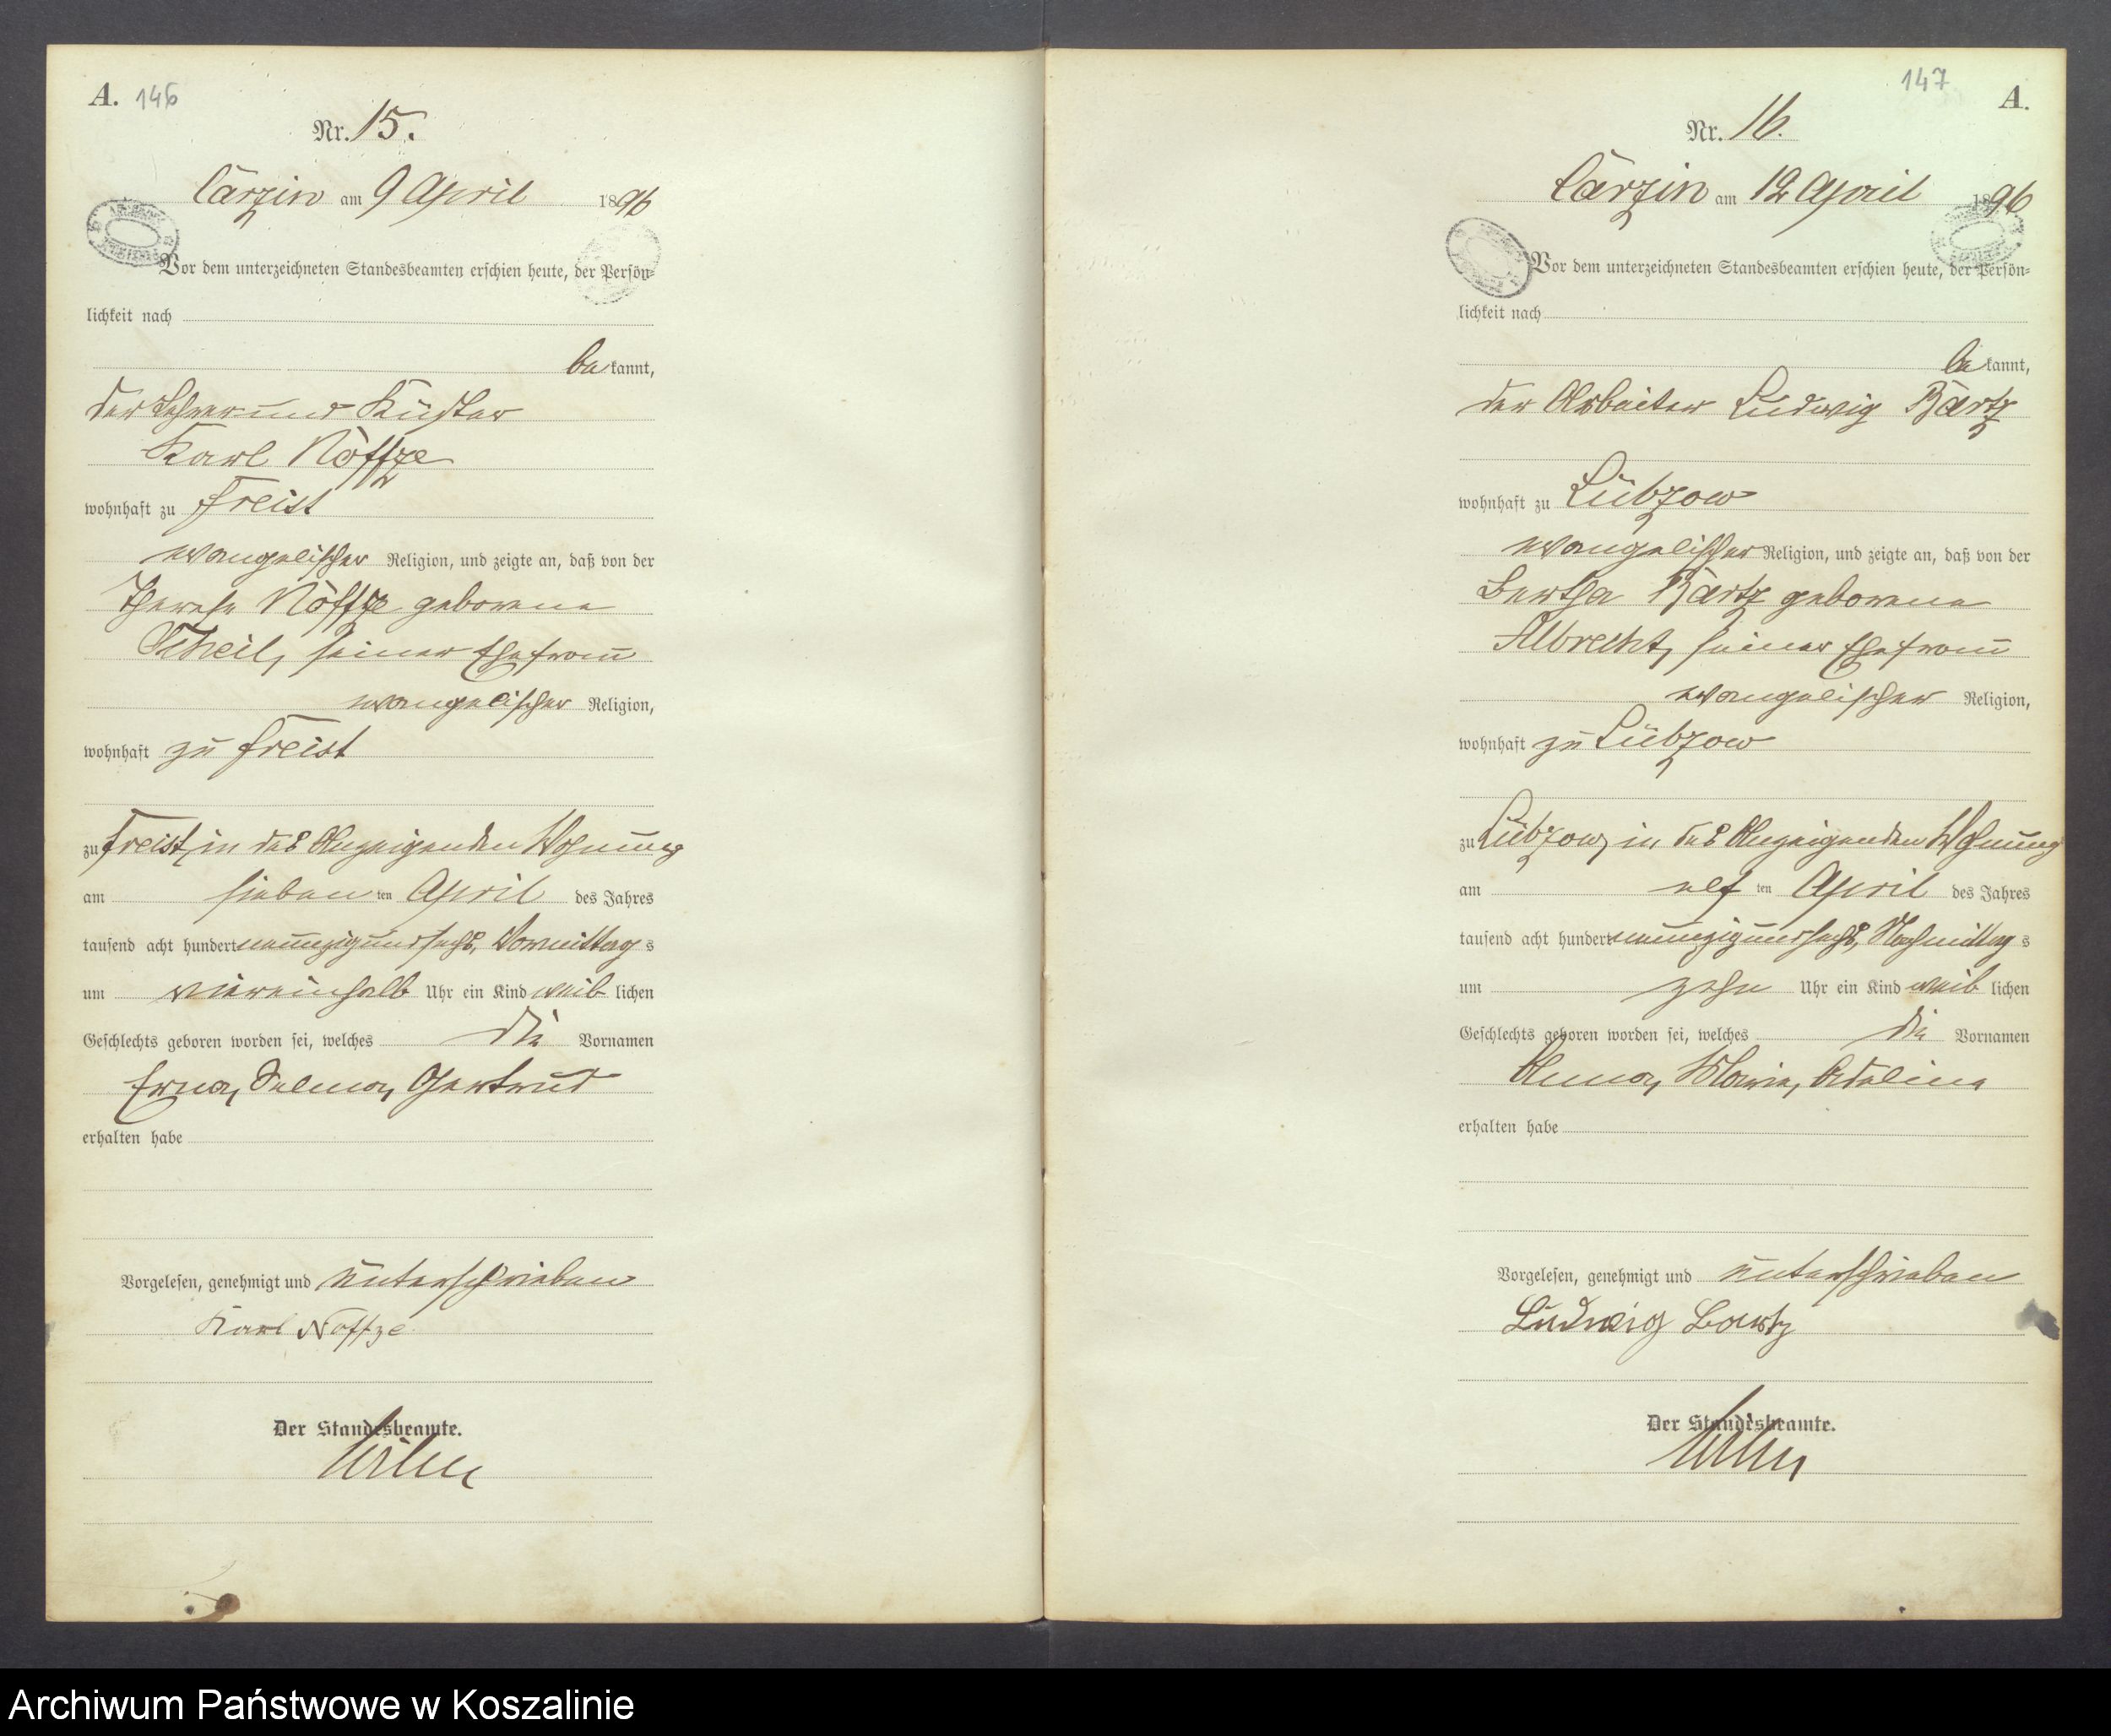 A. 146
Nr. 15.
Carzin am 9 April 1896
Vor dem unterzeichneten Standesbeamten erschien heute, der Persön=
lichkeit nach
be kannt,
der Lehrer und Küster
Karl Nöffze
wohnhaft zu Freist
evangelischer Religion, und zeigte an, daß von der
Therese Nöffze geborene
Theil, seiner Ehefrau
evangelischer Religion,
wohnhaft zu Freist
zu Freist, in des Anzeigenden Wohnung
am sieben ten April des Jahres
tausend acht hundert neunzig und sechs, Vormittag s
um viereinhalb Uhr ein Kind weib lichen
Geschlechts geboren worden sei, welches die Vornamen
Erna, Selma, Gertrud
erhalten habe
Vorgelesen, genehmigt und unterschrieben
Karl Nöffze
Der Standesbeamte.
147 A.
Nr. 16.
Carzin am 12 April 1896
Vor dem unterzeichneten Standesbeamten erschien heute, der Persön=
lichkeit nach
be kannt,
der Arbeiter Ludwig Bartz
wohnhaft zu Lübzow
evangelischer Religion, und zeigte an, daß von der
Bertha Bartz geborene
Albrecht, seiner Ehefrau
evangelischer Religion,
wohnhaft zu Lübzow
zu Lübzow, in des Anzeigenden Wohnung
am elf ten April des Jahres
tausend acht hundert neunzig und sechs, Nachmittag s
um zehn Uhr ein Kind weib lichen
Geschlechts geboren worden sei, welches die Vornamen
Anna, Marie, Adeline
erhalten habe
Vorgelesen, genehmigt und unterschrieben
Ludwig Bartz
Der Standesbeamte.
Archiwum Państwowe w Koszalinie